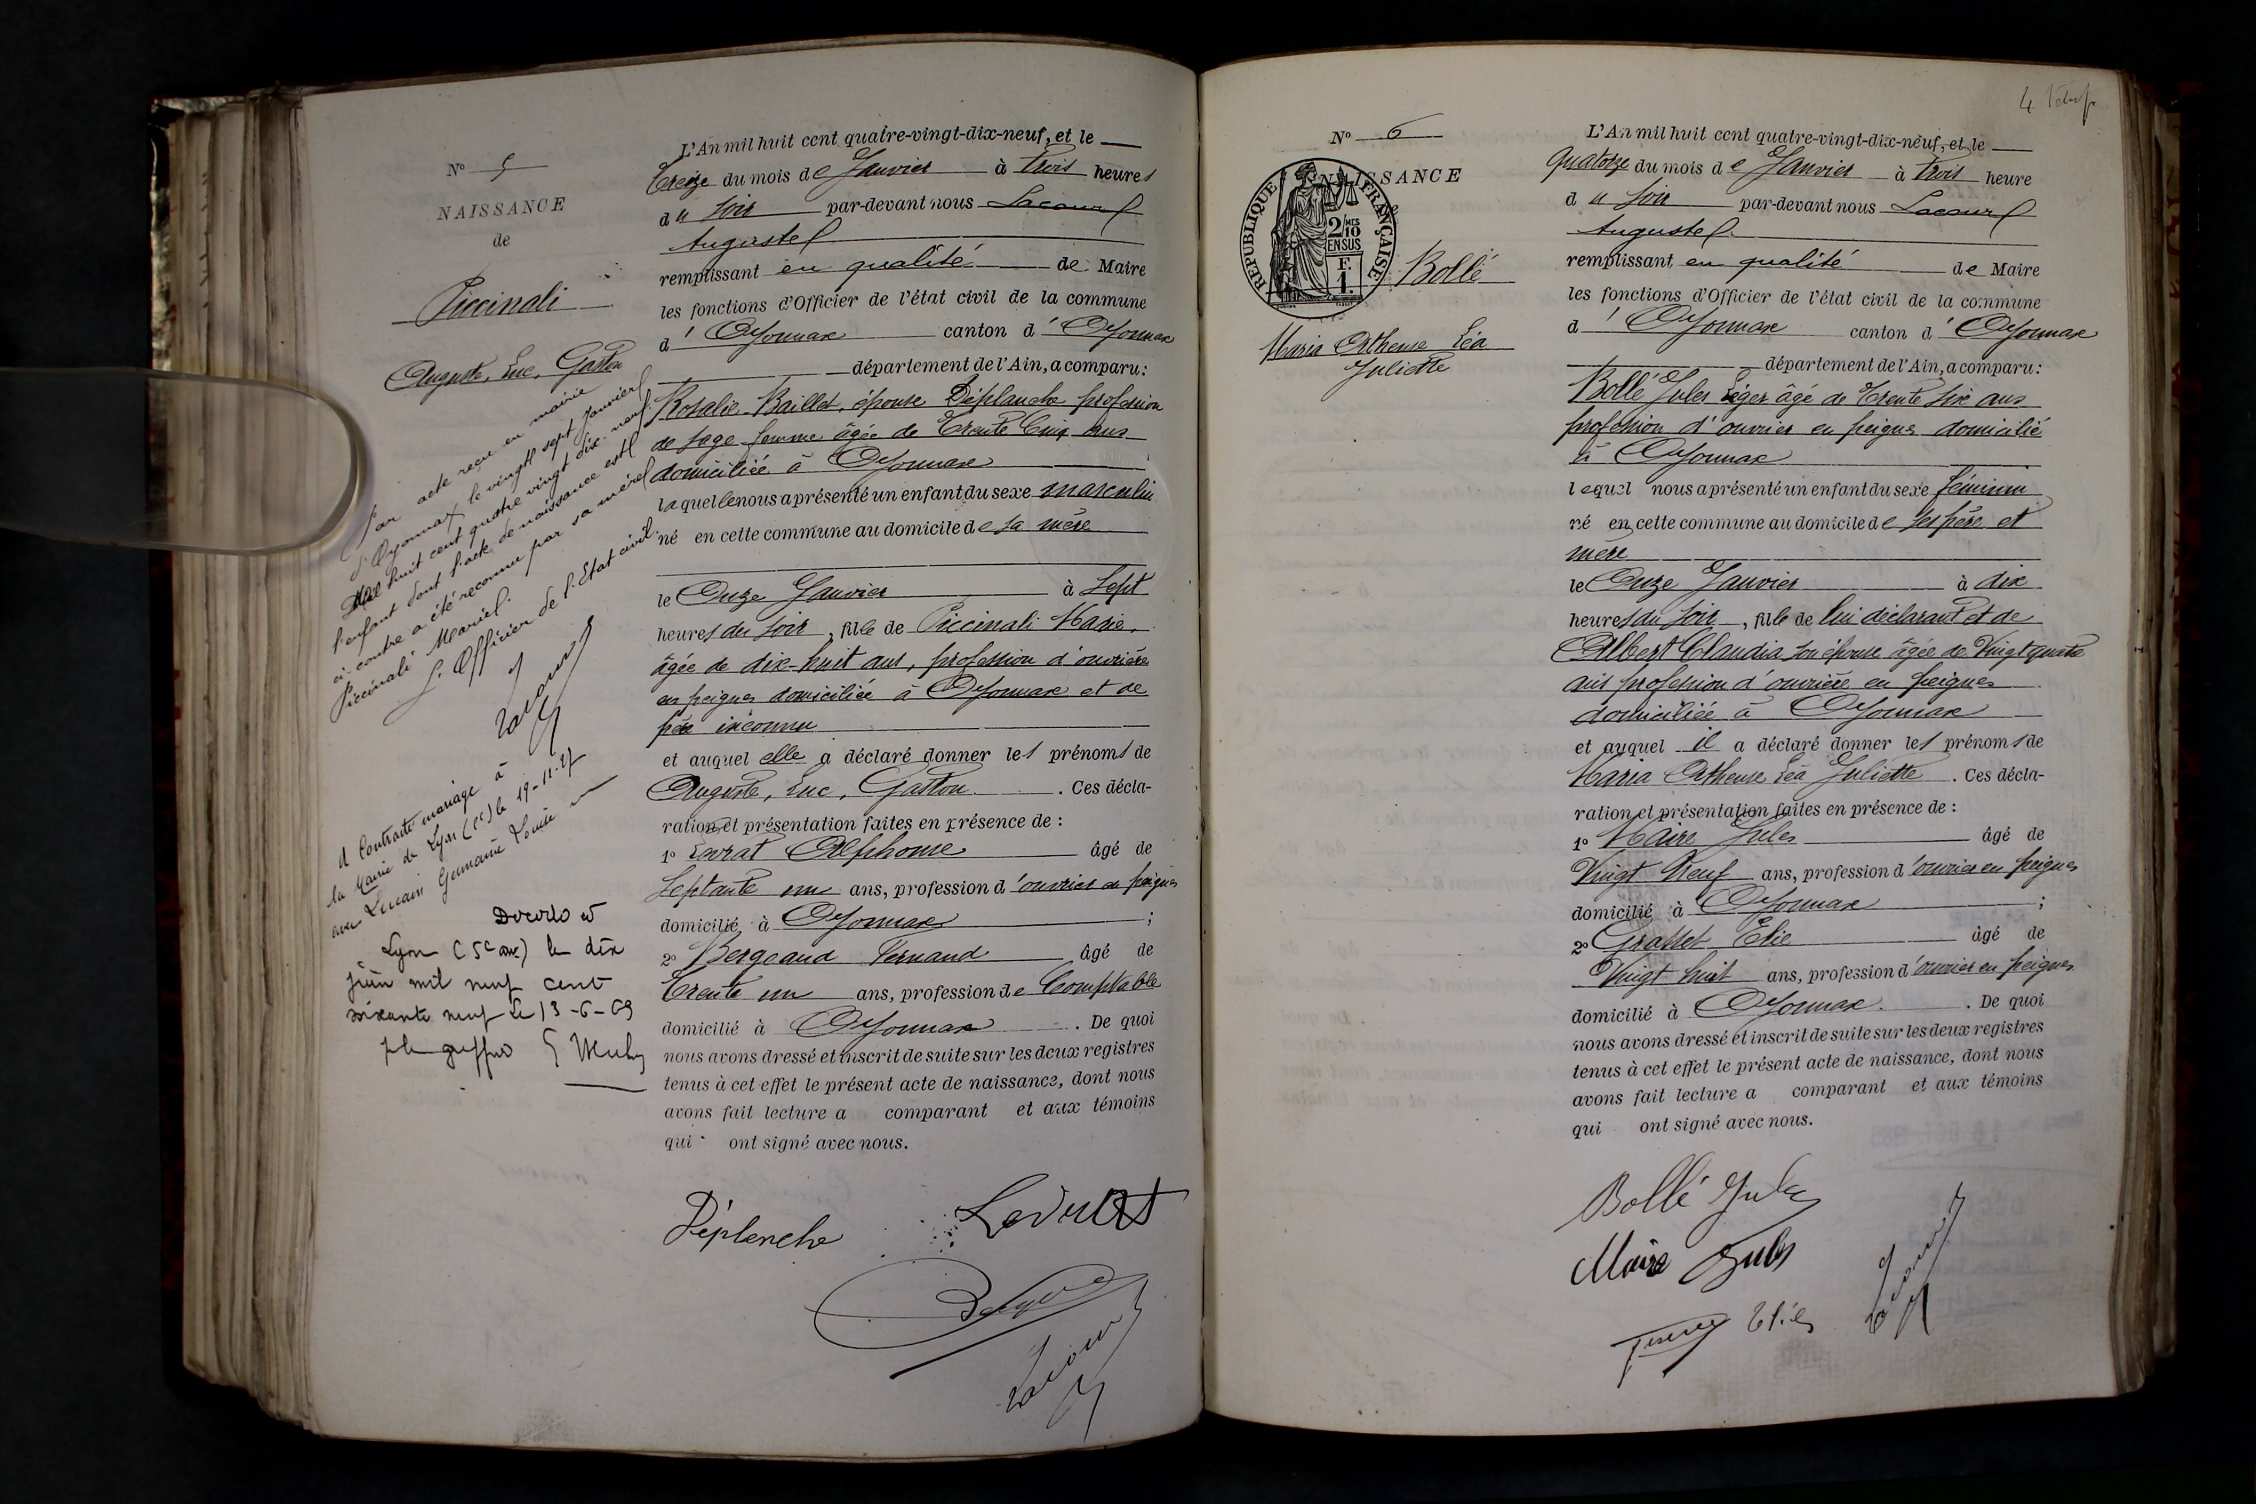 N° 5
NAISSANCE
de
Piccinali
Auguste, Luc, Gaston
Par acte reçu en mairie
d'Oyonnax le vingt sept Janvier
Mil huit cent quatre vingt dix-neuf
l'enfant dont l'acte de naissance est
ci-contre a été reconnu par sa mère
Piccinali Marie.
L'Officier de l'Etat civil
Lacour
A Contracté mariage à
la Mairie de Lyon le 19-11-27
avec Germaine Louise
Décédé à
Lyon (5e arr) le dix
juin mil neuf cent
soixante neuf Le 13-6-69
L'An mil huit cent quatre-vingt-dix-neuf, et le
treize du mois de Janvier à trois heures
du soir par-devant nous Lacour
Auguste
remplissant en qualité de Maire
les fonctions d'Officier de l'état civil de la commune
d'Oyonnax canton d'Oyonnax
département de l'Ain, a comparu:
Rosalie Baillet, épouse Déplanche profession
de sage femme âgée de Trente Cinq ans
domiciliée à Oyonnax
laquelle nous a présenté un enfant du sexe masculin
né en cette commune au domicile de sa mère
le Onze Janvier à Sept
heures du soir, fils de Piccinali Marie,
âgée de dix-huit ans, profession d'ouvrière
en peignes domiciliée à Oyonnax et de
père inconnu
et auquel elle a déclaré donner les prénoms de
Auguste, Luc, Gaston. Ces décla-
ration et présentation faites en présence de:
1° Alphonse âgé de
Septante un ans, profession d'ouvrier en peignes
domicilié à Oyonnax;
2° Bergeaud Fernand âgé de
Trente un ans, profession de Comptable
domicilié à Oyonnax. De quoi
nous avons dressé et inscrit de suite sur les deux registres
tenus à cet effet le présent acte de naissance, dont nous
avons fait lecture a comparant et aux témoins
qui ont signé avec nous.
Déplanche
Lacour
4
N° 6
NAISSANCE
REPUBLIQUE FRANÇAISE
2/10 MES
EN SUS
F.
1.
Bollé
Maria Orthense Léa
Juliette
L'An mil huit cent quatre-vingt-dix-neuf, et le
quatorze du mois de Janvier à trois heure
du soir par-devant nous Lacour
Auguste
remplissant en qualité de Maire
les fonctions d'Officier de l'état civil de la commune
d'Oyonnax canton d'Oyonnax
département de l'Ain, a comparu:
Bollé Jules Léger âgé de Trente six ans
profession d'ouvrier en peignes domicilié
à Oyonnax
lequel nous a présenté un enfant du sexe féminin
né en cette commune au domicile de ses père et
mère
le Onze Janvier à dix
heures du soir, fille de lui déclarant et de
Albert Claudia son épouse âgée de Vingt quatre
ans profession d'ouvrière en peignes
domiciliée à Oyonnax
et auquel il a déclaré donner les prénoms de
Maria Orthense Léa Juliette. Ces décla-
ration et présentation faites en présence de:
1° Maire Jules âgé de
Vingt Neuf ans, profession d'ouvrier en peignes
domicilié à Oyonnax;
2° Grasset Elie âgé de
Vingt huit ans, profession d'ouvrier en peignes
domicilié à Oyonnax. De quoi
nous avons dressé et inscrit de suite sur les deux registres
tenus à cet effet le présent acte de naissance, dont nous
avons fait lecture a comparant et aux témoins
qui ont signé avec nous.
Bollé Jules
Maire Jules
Elie
Lacour